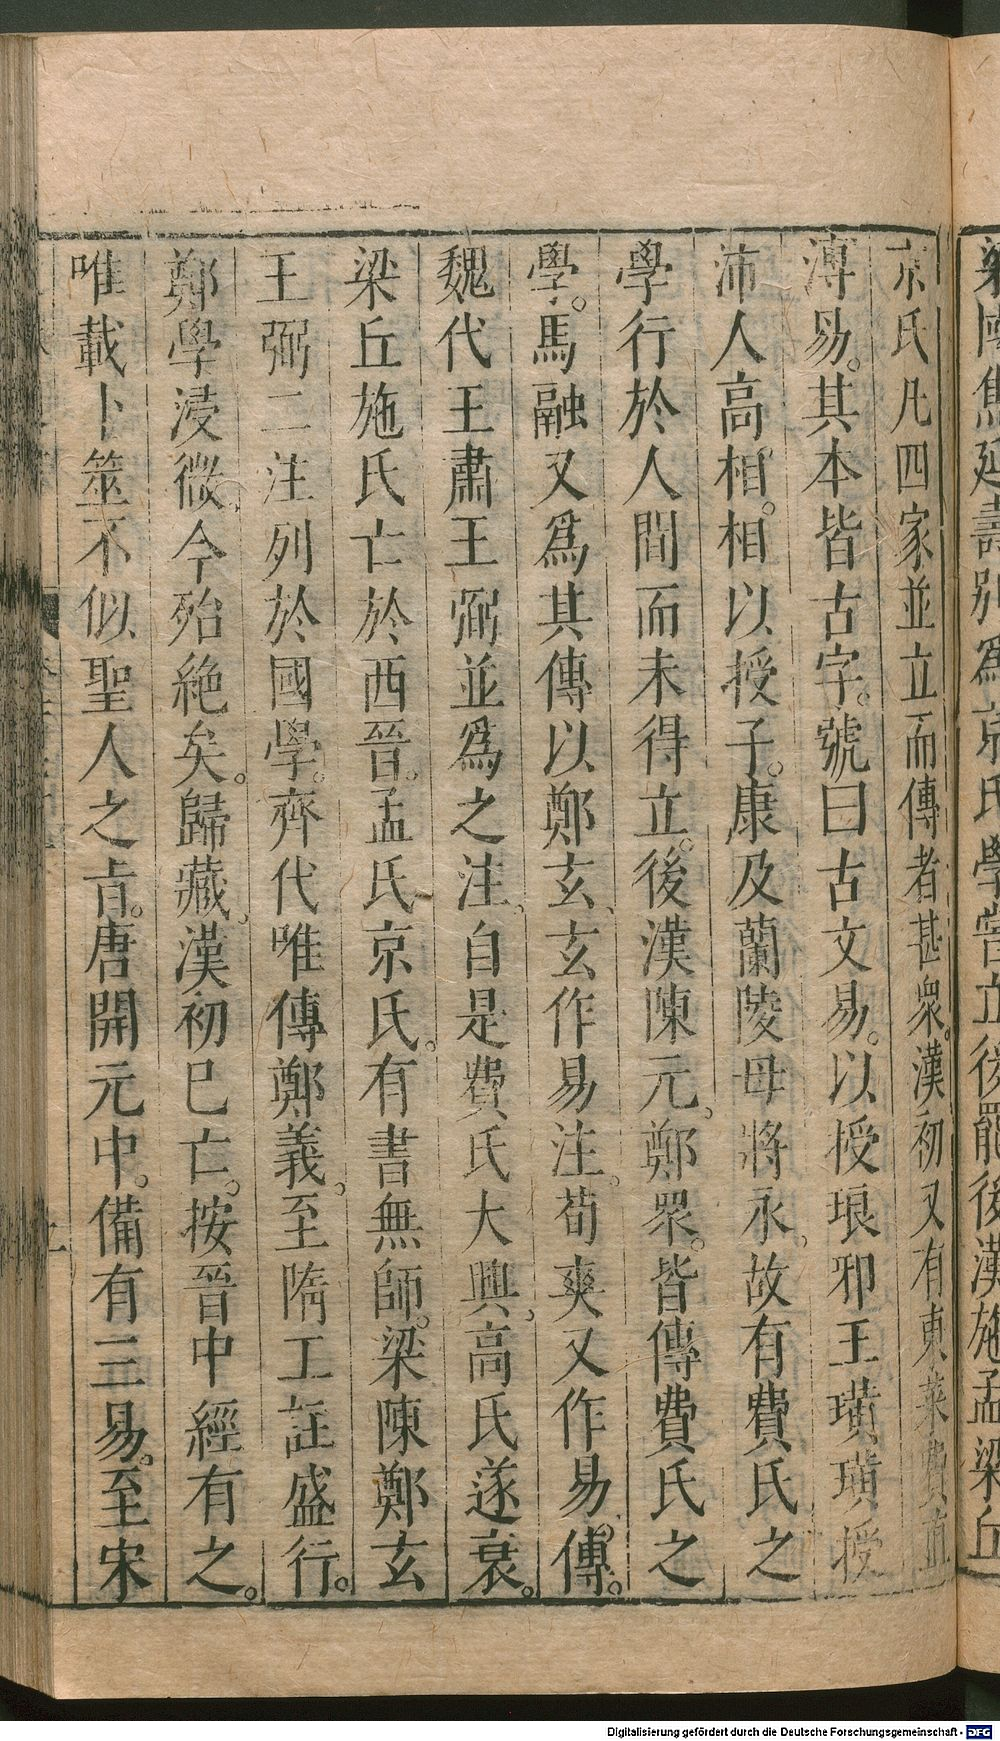 梁陵焦延壽別為京氏學嘗立後罷後漢施孟梁丘
京氏凡四家並立而傳者甚衆。漢初又有東萊費直
溥易。其本皆古字。號曰古文易。以授琅邪王璜璜授
沛人高相。相以授子。康及蘭陵母將永。故有費氏之
學行於人間而未得立。後漢陳元。鄭眾。皆傳費氏之
學。馬融又爲其傳以鄭玄、玄作易注。荀爽又作易。傳。
魏代王肅王弼並爲之注。自是費氏大興。高氏遂衰。
梁丘施氏亡於西晉。孟氏京氏。有書無師。梁陳鄭玄
王弼二注列於國學。齊代唯傳鄭義。至隋工註盛行。
鄭學浸微。今殆絶矣。歸藏。漢初已亡。按晉中經有之。
唯載卜筮不似聖人之㫖。唐開元中。備有三易。至宋
Digitalisierung gefördert durch die Deutsche Forschungsgemeinschaft - DFG